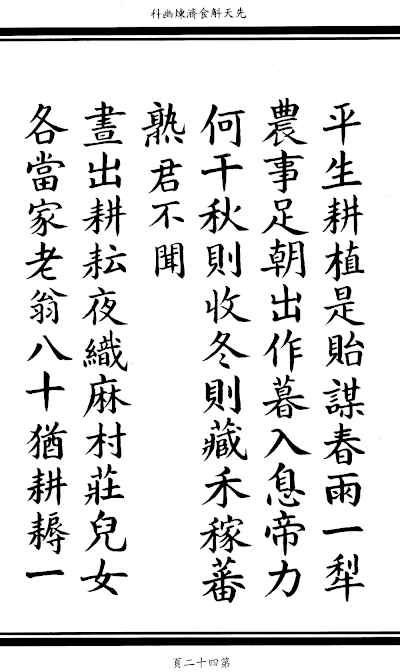 先天斛食濟煉幽科
平生耕植是貽謀春雨一犁
農事足朝出作暮入息帝力
何干秋則收冬則藏禾稼蕃
熟君不聞
晝出耕耘夜織麻村莊兒女
各當家老翁八十猶耕耨一
第四十二頁